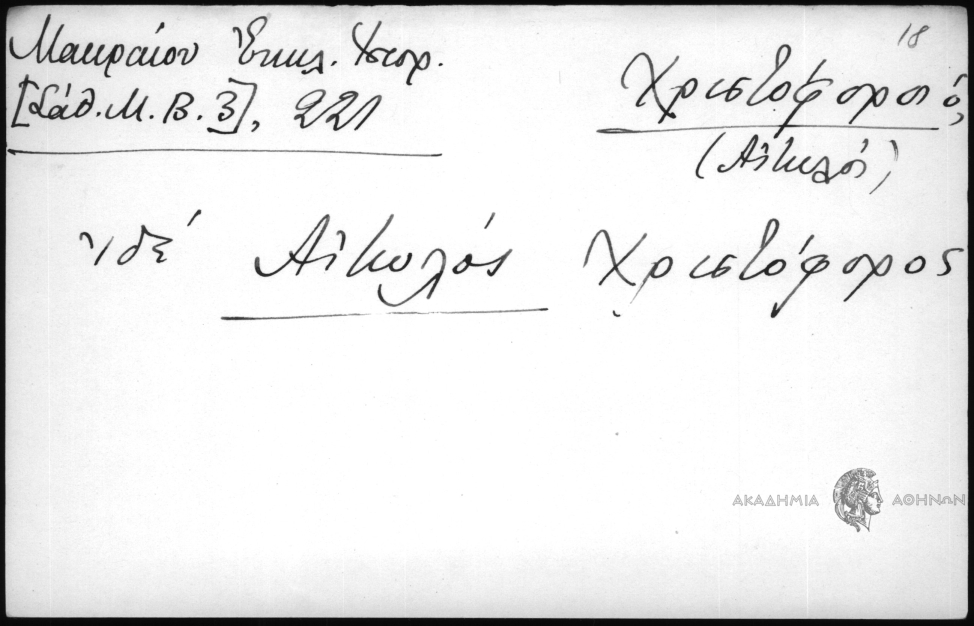 Μακραίου Ἐκκλ. Ἱστορ.
[Σάθ. Μ. Β. 3], 221
18
Χριστόφορος ὁ,
(Αἰτωλός)
ἰδέ Αἰτωλός Χριστόφορος
ΑΚΑΔΗΜΙΑ ΑΘΗΝΩΝ